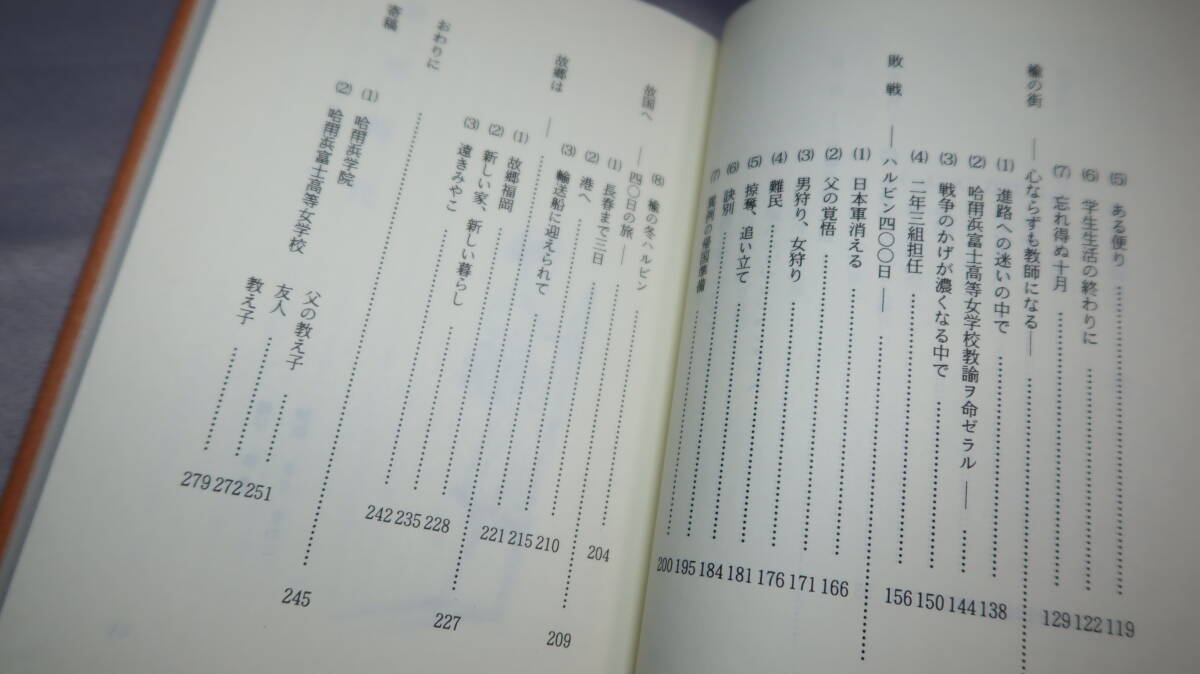 (5) ある便り 119
(6) 学生生活の終わりに 122
(7) 忘れ得ぬ十月 129
楡の街 ――心ならずも教師になる――
(1) 進路への迷いの中で 138
(2) 哈爾浜富士高等女学校教諭ヲ命ゼラル―― 144
(3) 戦争のかげが濃くなる中で 150
(4) 二年三組担任 156
敗戦 ――ハルビン四〇〇日――
(1) 日本軍消える 166
(2) 父の覚悟 171
(3) 男狩り、女狩り 176
(4) 難民 181
(5) 掠奪、追い立て 184
(6) 訣別 195
(7) 異例の帰国準備 200
(8) 楡の冬ハルビン 204
故国へ ――四〇日の旅―― 209
(1) 長春まで三日 210
(2) 港へ 215
(3) 輸送船に迎えられて 221
故郷は ―― 227
(1) 故郷福岡 228
(2) 新しい家、新しい暮らし 235
(3) 遠きみやこ 242
おわりに 245
寄稿
(1) 哈爾浜学院 父の教え子 251
(2) 哈爾浜富士高等女学校 友人 272
教え子 279